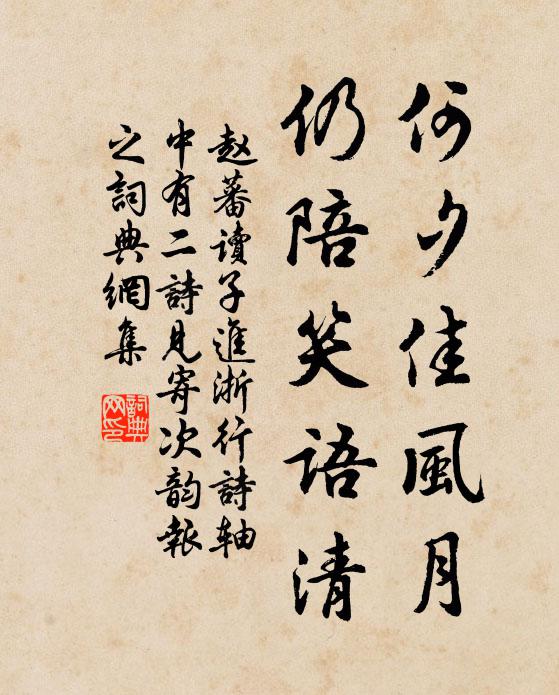 何夕佳風月
仍陪笑語清
赵蕃讀子進浙行詩軸
中有二詩見寄次韵報
之詞典網集
詞典
网印